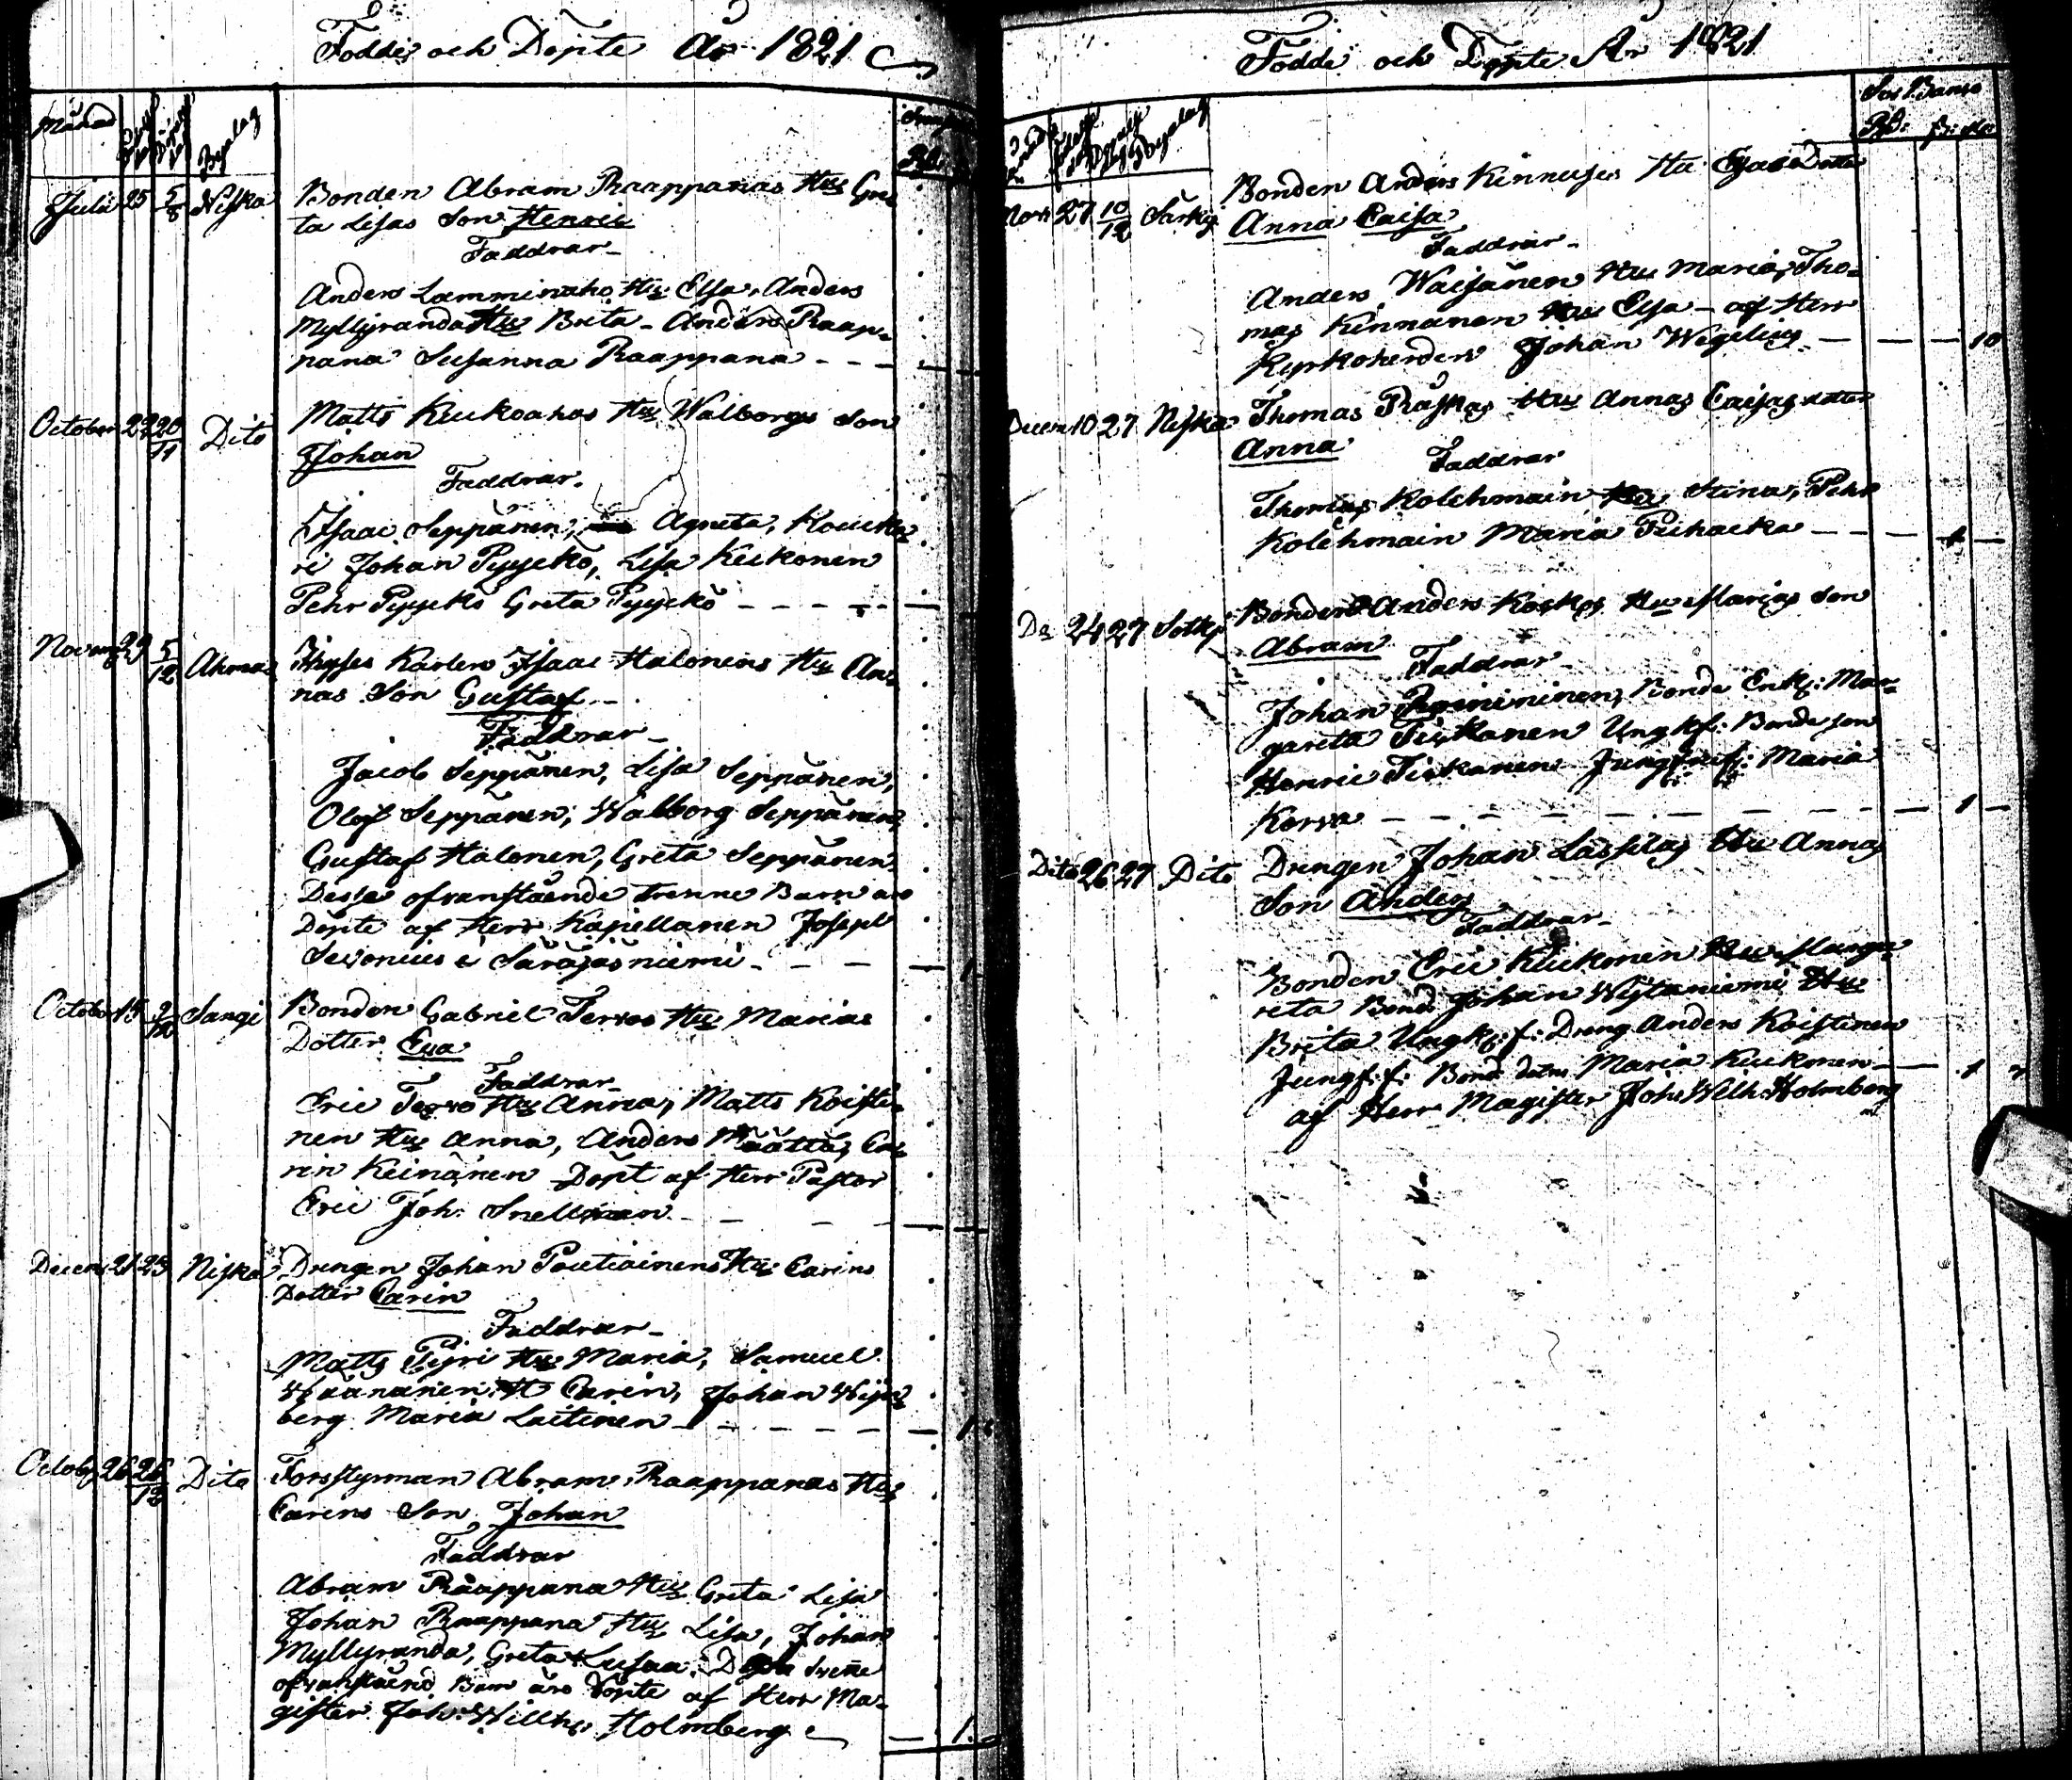 Födde och Döpte År 1821
Månad Byalag
Julii 25 5/8 Niska Bonden Abram Raappanas Hus Gre
ta Lisas Son Henric
Faddrar
Anders Lamminaho Hus Elsa, Anders
Myllyranda Hus Brita - Anders Raap-
pana Susanna Raappana
October 22 20/11 Dito Matts Kiukoahos Hus Walborgs Son
Johan
Faddrar.
Isaac Seppänen, Agneta,
ri Johan Pyyckö, Lisa Keikonen
Pehr Pyyckö Greta Pyyckö
Novemb 29 5/12 Ahmas Karlen Isaac Halonens Hus An-
nas Son Gustaf
Faddrar
Jacob Seppänen, Lisa Seppänen,
Olof Seppänen, Walborg Seppänen,
Gustaf Halonen, Greta Seppänen
Desse ofvanstående trenne Barn äro
Döpte af Herr Kapellanen Joseph
i Säräjäsniemi 1
October 15 Sangi Bonden Gabriel Tervos Hus Marias
Dotter Eva
Faddrar
Eric Tervo Hus Anna, Matts Koisti-
nen Hus Anna, Anders Määttä, Ca-
rin Keinänen Döpt af Herr Pastor
Eric Joh: Snellman
Decemb 21 23 Niska Drengen Johan Poutiainens Hus Carins
Dotter Carin
Faddrar
Matts Pipri Hus Maria, Samuel
Wäänänen H Carin, Johan
berg Maria Laitinen 1
Octob 26 26/12 Dito Forsstyrman Abram Raappanas Hus
Carins Son Johan
Faddrar
Abram Raappana Hus Greta Lisa
Johan Raappana Hus Lisa, Johan
Myllyranda, Greta Desse trenne
ofvanståend Barn äro Döpte af Herr Ma-
gister Joh: Willh: Holmberg 1
Födde och Döpte År 1821
Byalag
Nov 27 10/12 Särkij Bonden Anders Kinnuses Hu Dotter
Anna Caisa
Faddrar
Anders Waisänen Hus Maria, Tho-
mas Kinnanen Hus Elsa - af Herr
Kyrkoherden Johan Wegelius 10
Decem 10 27 Niska Thomas Räskas Hus Annas Caisas dotter
Anna
Faddrar
Thomas Kolehmain Hu Stina, Pehr
Kolehmain Maria Puhacka 1
Do 24 27 Sotkj Bonden Anders Koskos Hus Marias Son
Abram
Faddrar
Johan Bonde Enk: Mar-
gareta Tiskanen Ungk: Bonde son
Henric Tiskanen Jungfru: Maria
Korva 1
Dito 26 27 Dito Drengen Johan Lassilas Hu Annas
Son Anders
Faddrar
Bonden Eric Kiukonen Hus Marga-
reta Bond: Johan Wijtaniemi Hus
Brita Ungk: f: Dreng Anders Koistinen
Jungf: f: Bond dotter Maria Kiukonen 1
af Herr Magister Joh: Welh: Holmberg